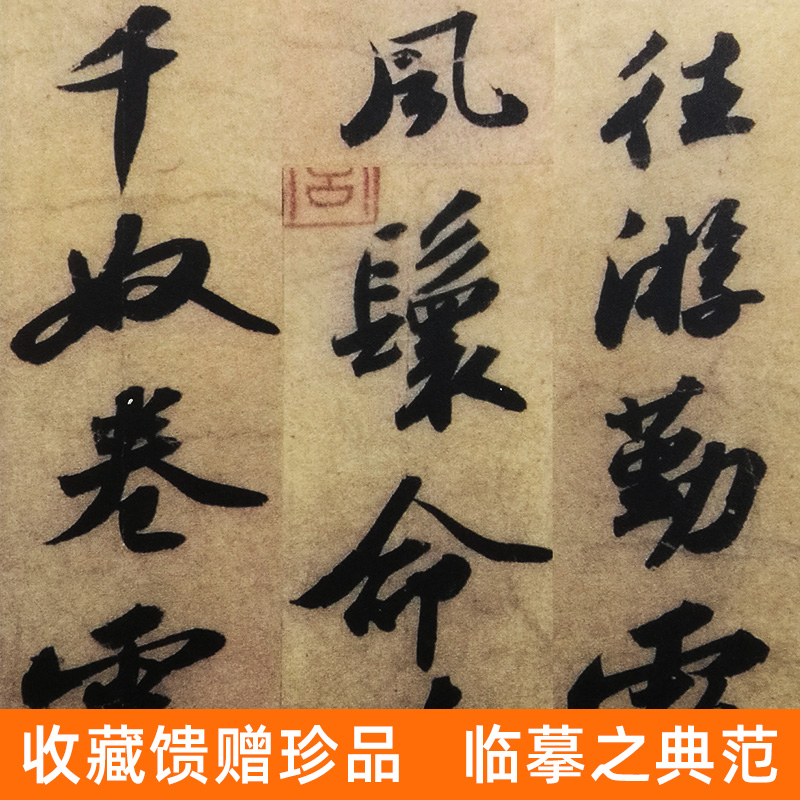 往游勤
風鬟命
千奴卷
收藏馈赠珍品 临摹之典范